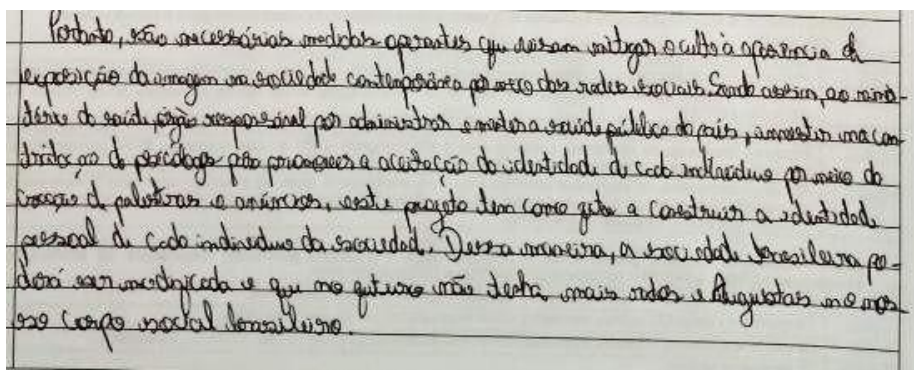 Portanto, são necessárias medidas operantes que visam mitigar o culto à aparência de
exposição da imagem na sociedade contemporânea por meio das redes sociais. Sendo assim, ao minis-
tério da saúde, órgão responsável por administrar e manter a saúde pública do país, investir na con-
tratação de psicólogos para promover a aceitação da identidade de cada indivíduo por meio da
criação de palestras e anúncios, este projeto tem como a construir a identidade
pessoal de cada indivíduo da sociedade. Dessa maneira, a sociedade brasileira po-
derá ser modificada e que no futuro não tenha mais e no nos-
so corpo social brasileiro.